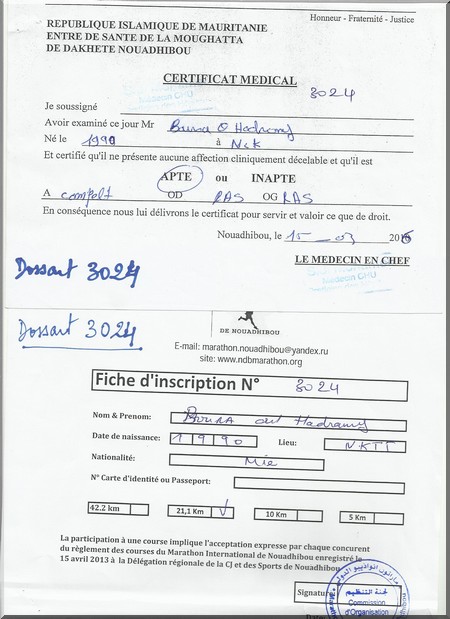 Honneur - Fraternité - Justice
REPUBLIQUE ISLAMIQUE DE MAURITANIE
ENTRE DE SANTE DE LA MOUGHATTA
DE DAKHETE NOUADHIBOU
CERTIFICAT MEDICAL
3024
Je soussigné
Avoir examiné ce jour Mr Boura O Hadramy
Né le 1990 à Nck
Et certifié qu'il ne présente aucune affection cliniquement décelable et qu'il est
APTE ou INAPTE
A complt OD RAS OG RAS
En conséquence nous lui délivrons le certificat pour servir et valoir ce que de droit.
Nouadhibou, le 15 - 03 2016
LE MEDECIN EN CHEF
Medecin CHU
Dossart 3024
Dossart 3024
DE NOUADHIBOU
E-mail: marathon.nouadhibou@yandex.ru
site: www.ndbmarathon.org
Fiche d'inscription N° 3024
Nom & Prenom: Boura out Hadramy
Date de naissance: 1990 Lieu: NKTT
Nationalité: Mie
N° Carte d'identité ou Passeport:
42.2 km 21,1 Km 10 Km 5 Km
La participation à une course implique l'acceptation expresse par chaque concurent
du règlement des courses du Marathon International de Nouadhibou enregistré le
15 avril 2013 à la Délégation régionale de la CJ et des Sports de Nouadhibou
Signature
لجنة التنظيم
Commission
d'Organisation
Date